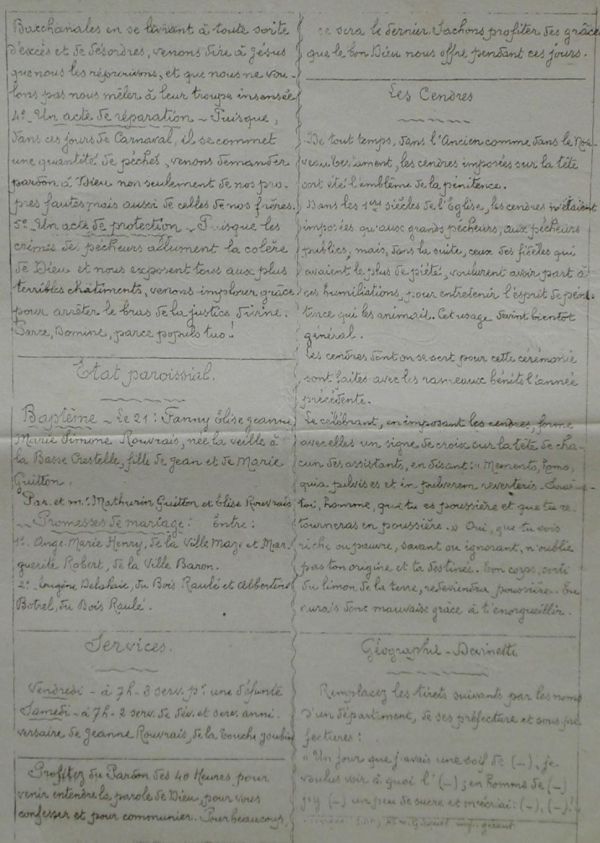 Bacchanales en se livrant à toute sorte
d'excès et de désordres, venons dire à Jésus
que nous les réprouvons, et que nous ne vou-
lons pas nous mêler à leur troupe insensée
4° Un acte de réparation - Puisque,
dans ces jours de Carnaval, il se commet
une quantité de péchés, venons demander
pardon à Dieu non seulement de nos pro-
pres fautes mais aussi de celles de nos frères.
5° Un acte de protection - Puisque les
crimes de pécheurs allument la colère
de Dieu et nous exposent tous aux plus
terribles châtiments, venons implorer grâce
pour arrêter le bras de la justice divine.
Parce, Domine, parce populo tuo!
État paroissial.
Baptême - Le 21: Fanny Élise Jeanne
Marie Simone Rouvrais, née la veille à
la Basse Crestelle, fille de Jean et de Marie
Guitton.
Par. et m. Mathurin Guitton et Élise Rouvrais
Promesses de mariage: Entre:
1° Ange-Marie Henry, de la Ville Maze et Mar-
guerite Robert, de la Ville Baron.
2° Eugène Delahaie, du Bois Raulé et Albertine
Botrel, du Bois Raulé.
Services.
Vendredi - à 7h - 8 serv. pr. une défunte
Samedi - à 7h - 2 serv. de dév. et serv. anni-
versaire de Jeanne Rouvrais, de la Touche Joubin
Profitez du Pardon des 40 Heures pour
venir entendre la parole de Dieu, pour vous
confesser et pour communier. Pour beaucoup,
ce sera le dernier. Sachons profiter des grâces
que le bon Dieu nous offre pendant ces jours.
Les Cendres
De tout temps, dans l'Ancien comme dans le Nou-
veau testament, les cendres imposées sur la tête
ont été l'emblème de la pénitence.
Dans les 1ers siècles de l'Église, les cendres n'étaient
imposées qu'aux grands pécheurs, aux pécheurs
publics, mais, dans la suite, ceux des fidèles qui
avaient le plus de piété, voulurent avoir part à
ces humiliations, pour entretenir l'esprit de péni-
tence qui les animait. Cet usage devint bientôt
général.
Les cendres dont on se sert pour cette cérémonie
sont faites avec les rameaux bénits l'année
précédente.
Le célébrant, en imposant les cendres, forme
avec elles un signe de croix sur la tête de cha-
cun des assistants, en disant: "Memento, homo,
quia pulvis es et in pulverem reverteris. Souviens-
toi, homme, que tu es poussière et que tu re-
tourneras en poussière. » Oui, que tu sois
riche ou pauvre, savant ou ignorant, n'oublie
pas ton origine et ta destinée. Ton corps, sorti
du limon de la terre, redeviendra poussière. Tu
aurais donc mauvaise grâce à t'enorgueillir.
Géographie - Devinette
Remplacez les tirets suivants par les noms
d'un département, de ses préfecture et sous pré-
fectures:
« Un jour que j'avais une soif de (-), je
voulus voir à quoi l'(-); en homme de (-)
j'y (-) un peu de sucre et m'écriai: (-), (-)!